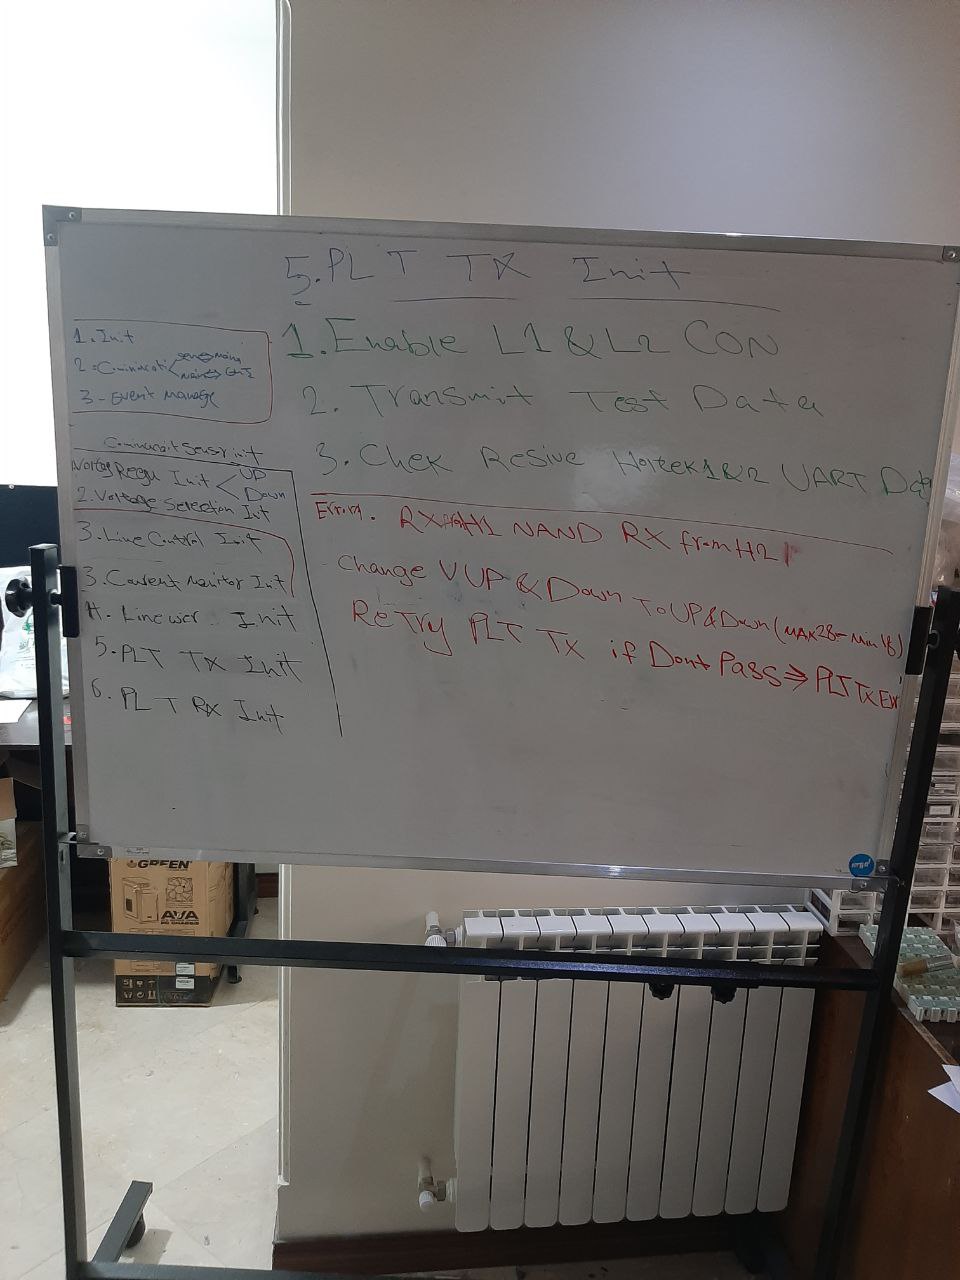 5. PLT TX Init
1. Init
2. main
3- Event Manage
Sensor init
Voltag Regu Init < UP
Down
2. Voltage Selection Init
3. Line Control Init
3. Current Monitor Init
4. Line Init
5. PLT TX Init
6. PLT RX Init
1. Enable L1&L2 CON
2. Transmit Test Data
3. Chek Resive Holtek1&2 UART Data
Error1. RX H1 NAND RX from H2
Change VUP & Down To UP&Down (MAX28- Min18)
ReTry PLT TX if Dont Pass ⇒ PLT TX Err
GREEN
AVA